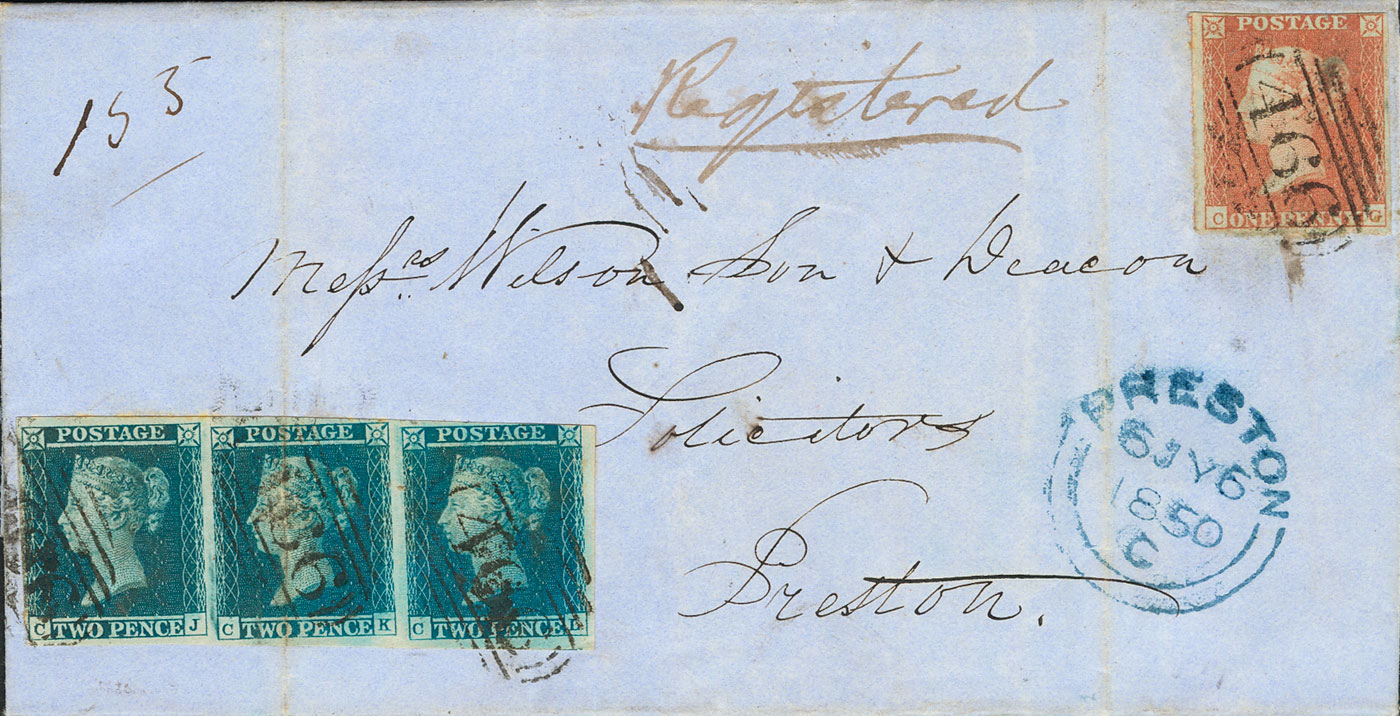 155
Registered
POSTAGE
466
C ONE PENNY G
Messrs. Wilson Son & Deacon
Solicitors
Preston.
PRESTON
6 JY 6
1850
C
POSTAGE POSTAGE POSTAGE
466 466
C TWO PENCE J C TWO PENCE K C TWO PENCE L